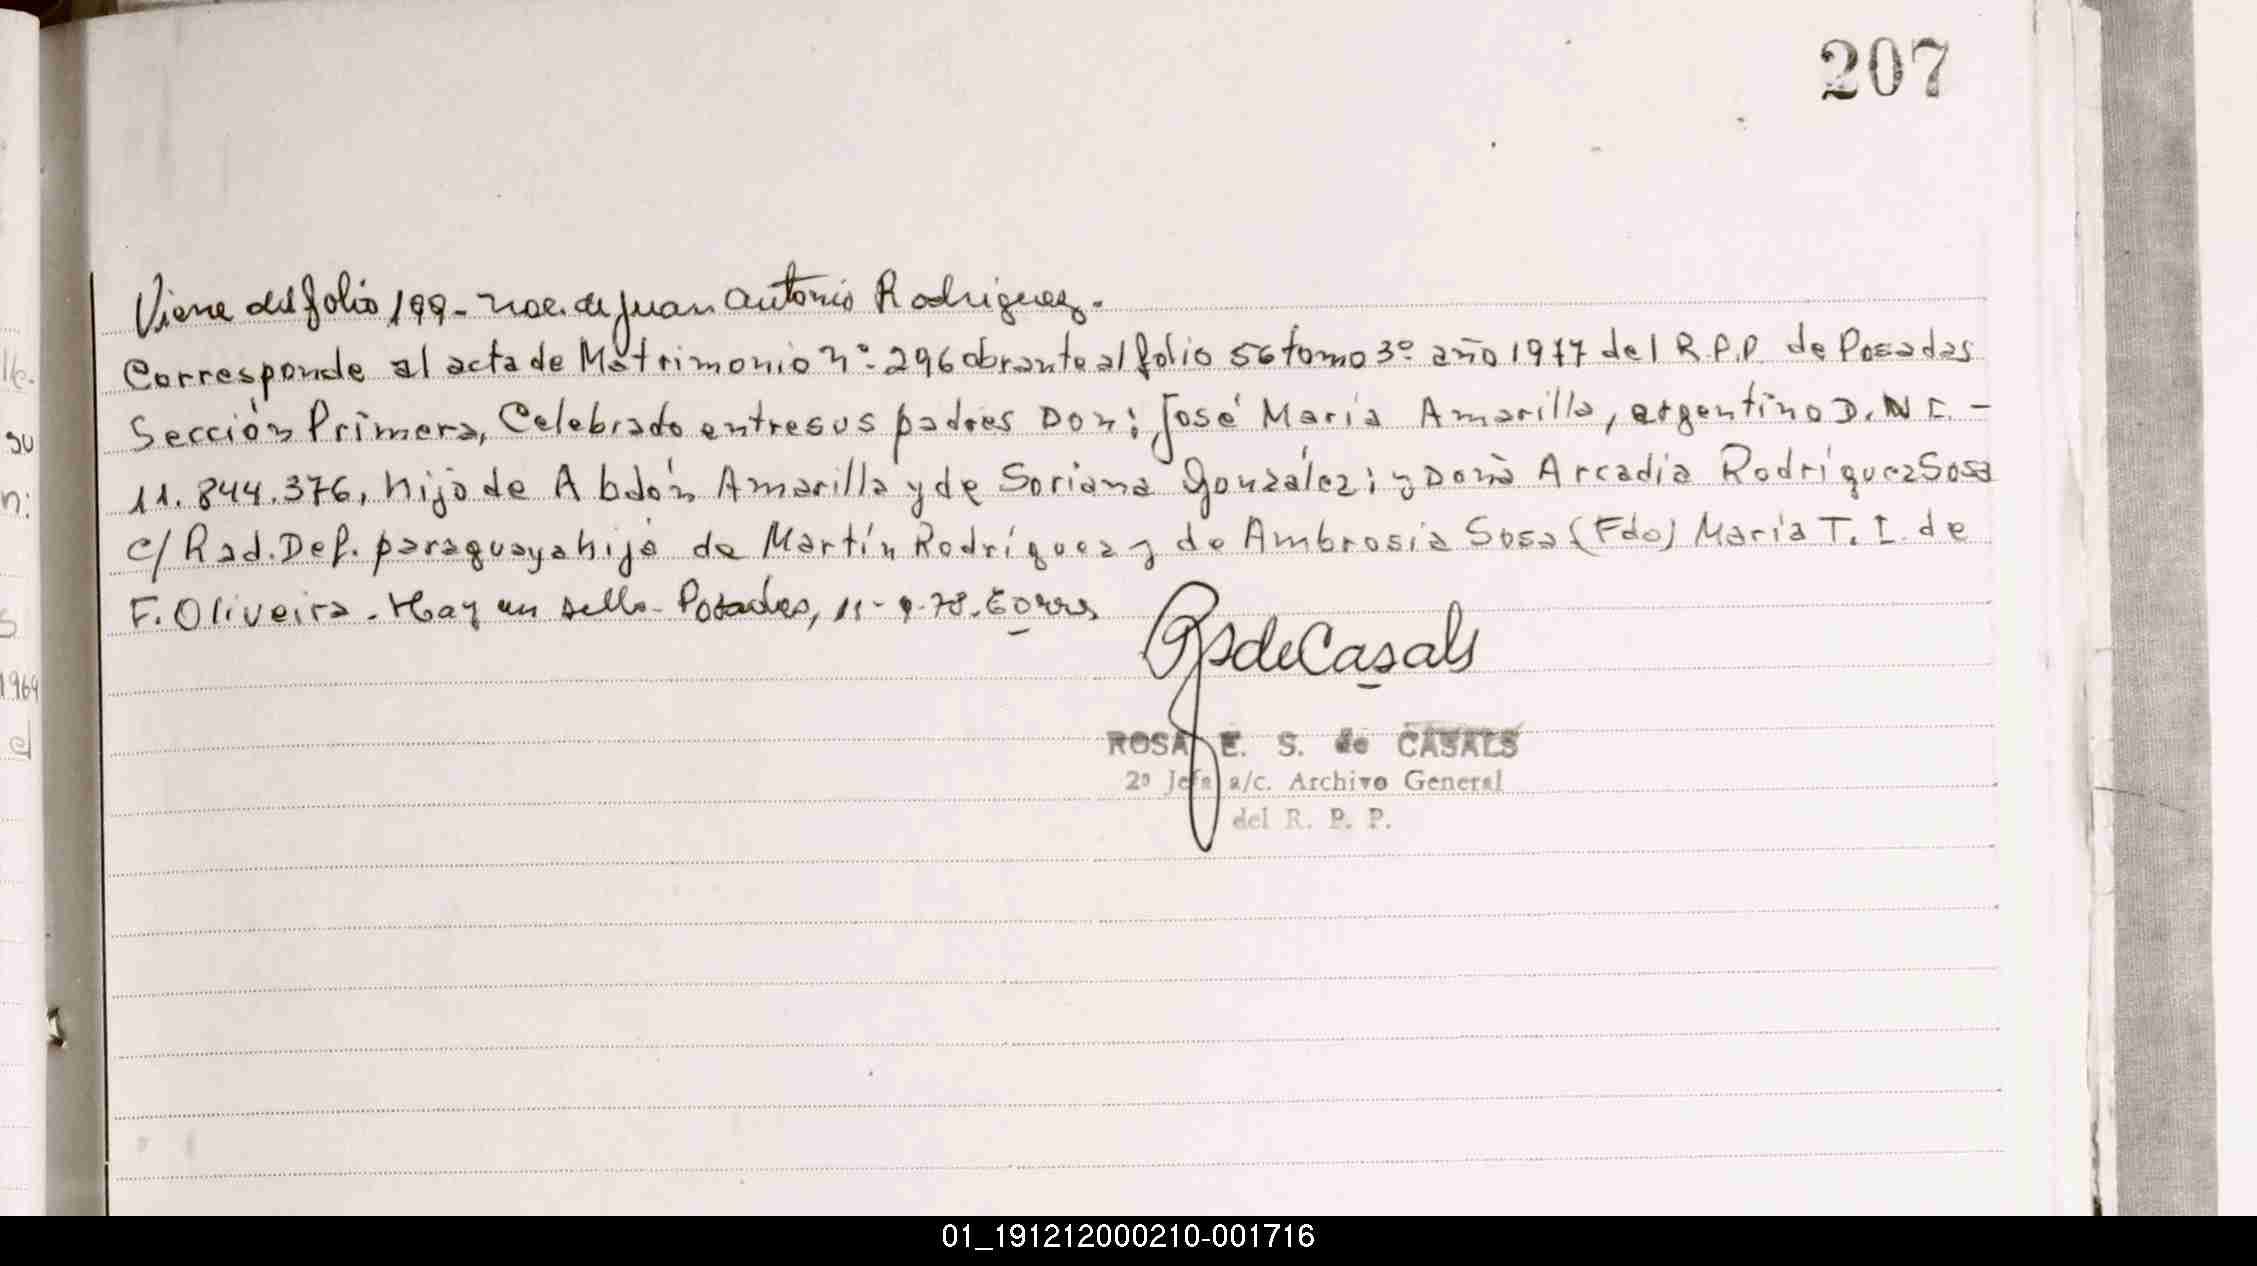 207
Viene del folio 199- nac. de Juan Antonio Rodriguez.
Corresponde al acta de Matrimonio nº 296 obrante al folio 56 tomo 3º año 1977 del R.P.P de Posadas
Sección Primera, Celebrado entre sus padres Don: José María Amarilla, argentino D.N.I. -
11.844.376, hijo de Abdón Amarilla y de Soriana González; y Doña Arcadia Rodríguez Sosa
c/ Rad. Def. paraguaya hija de Martín Rodríguez y de Ambrosia Sosa (Fdo) María T. I. de
F. Oliveira. Hay un sello- Posadas, 11-9-78.
RSdeCasals
ROSA E. S. de CASALS
2ª Jefa a/c. Archivo General
del R. P. P.
lle.
su
n:
S
1964
d
01_191212000210-001716